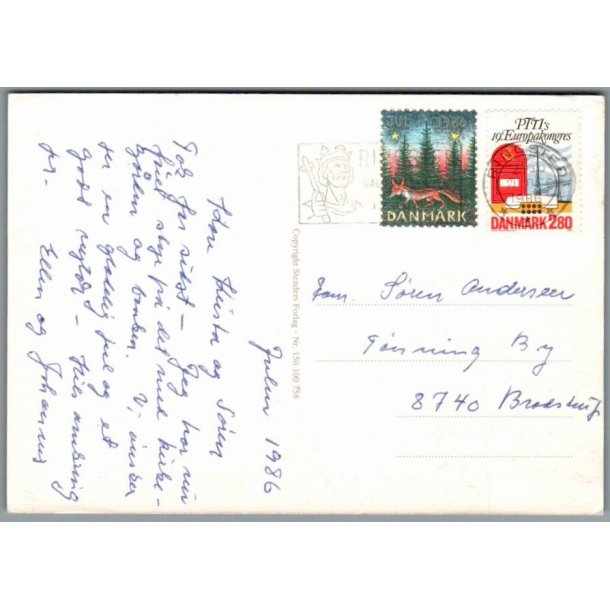 Julen 1986
Kære Kirsta og Søren
Tak for sidst – Jeg har nu
fået styr på det med kirke-
gården og banken. Vi ønsker
jer en glædelig jul og et
godt nytår – Hils
jer. Ellen og Johannes
Copyright Stenders Forlag - Nr. 150 100 758
JUL 1984
DANMARK
PTTI's
19. Europakongres
DANMARK 2.80
RINGSTED
Fam. Søren Andersen
Tønning By
8740 Brædstrup